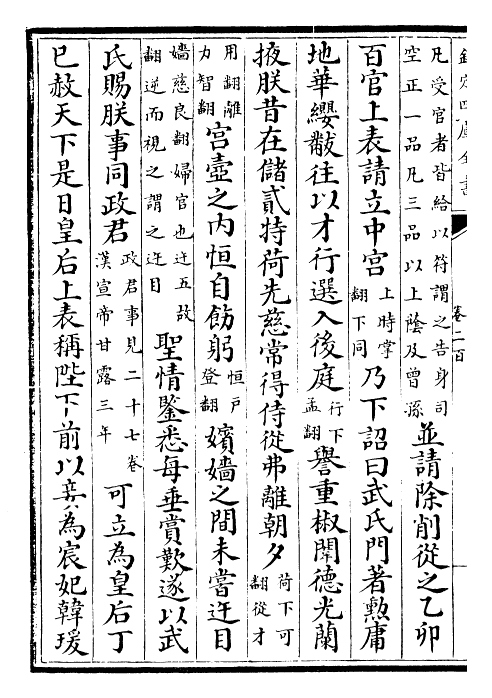 欽定四庫全書
卷二百
凡受官者皆給以符謂之告身司
空正一品凡三品以上蔭及曾孫
並請除削從之乙卯
百官上表請立中宮上時掌翻下同乃下詔曰武氏門著勲庸
地華纓黻往以才行選入後庭行下孟翻譽重椒闈德光蘭
掖朕昔在儲貳特荷先慈常得侍從弗離朝夕荷下可翻從才
用翻離力智翻宮壼之内恒自飭躬恒戸登翻嬪嬙之間未嘗迕目
嬙慈良翻婦官也迕五故翻逆而視之謂之迕目聖情鑒悉每垂賞歎遂以武
氏賜朕事同政君政君事見二十七卷漢宣帝甘露三年可立為皇后丁
巳赦天下是日皇后上表稱陛下前以妾為宸妃韓瑗